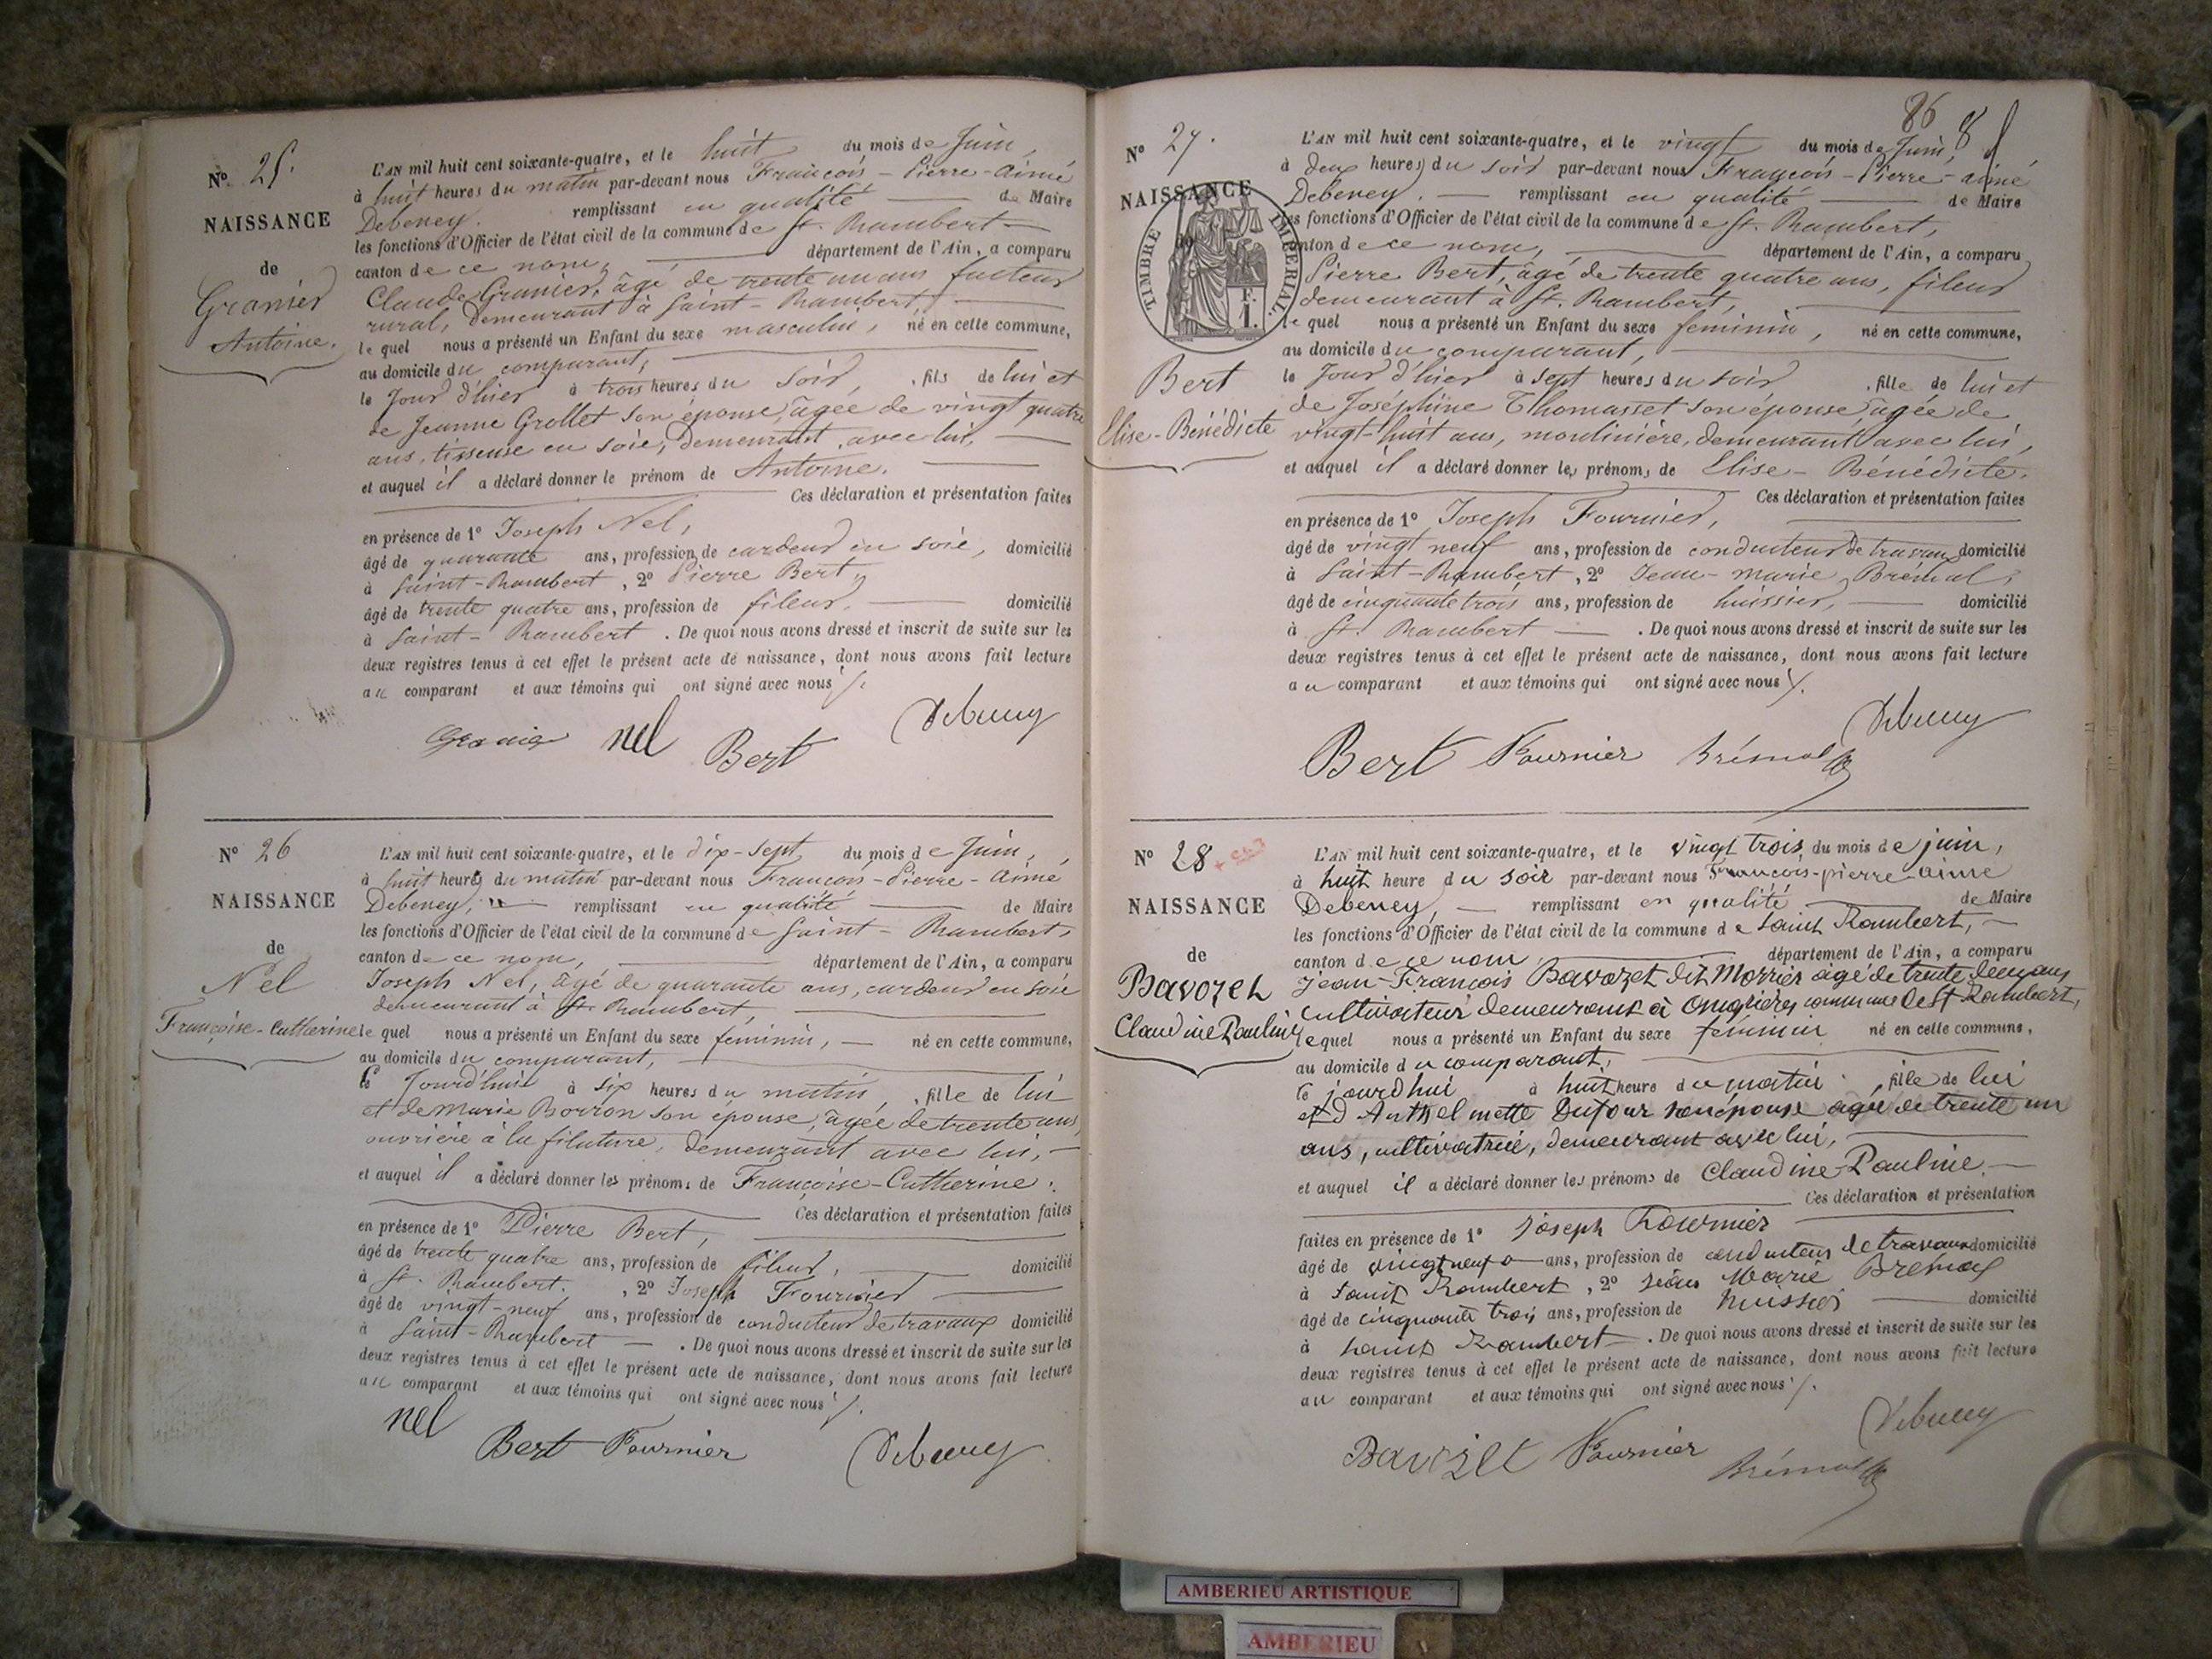 Nº 25.
NAISSANCE
de
Granier
Antoine.
L'AN mil huit cent soixante-quatre, et le huit du mois de Juin,
à huit heures du matin par-devant nous François-Pierre-Aimé
Debeney. remplissant en qualité de Maire
les fonctions d'Officier de l'état civil de la commune de St. Rambert
canton de ce nom, département de l'Ain, a comparu
Claude Granier, âgé de trente un ans facteur
rural, demeurant à Saint-Rambert,
le quel nous a présenté un Enfant du sexe masculin, né en cette commune,
au domicile du comparant,
le Jour d'hier à trois heures du soir, fils de lui et
de Jeanne Grollet son épouse, âgée de vingt quatre
ans, tisseuse en soie, demeurant avec lui,
et auquel il a déclaré donner le prénom de Antoine.
Ces déclaration et présentation faites
en présence de 1º Joseph Nel,
âgé de quarante ans, profession de cardeur en soie, domicilié
à Saint-Rambert, 2º Pierre Bert,
âgé de trente quatre ans, profession de fileur, domicilié
à Saint-Rambert. De quoi nous avons dressé et inscrit de suite sur les
deux registres tenus à cet effet le présent acte de naissance, dont nous avons fait lecture
au comparant et aux témoins qui ont signé avec nous
Granier nel Bert Debeney
Nº 26
NAISSANCE
de
Nel
Françoise-Catherine
L'AN mil huit cent soixante-quatre, et le dix-sept du mois de Juin,
à huit heures du matin par-devant nous François-Pierre-Aimé
Debeney, remplissant en qualité de Maire
les fonctions d'Officier de l'état civil de la commune de Saint-Rambert,
canton de ce nom, département de l'Ain, a comparu
Joseph Nel, âgé de quarante ans, cardeur en soie
demeurant à St. Rambert,
le quel nous a présenté un Enfant du sexe féminin, né en cette commune,
au domicile du comparant,
le Jourd'hui à six heures du matin, fille de lui
et de Marie Borron son épouse, âgée de trente ans,
ouvrière à la filature, demeurant avec lui,
et auquel il a déclaré donner les prénoms de Françoise-Catherine.
Ces déclaration et présentation faites
en présence de 1º Pierre Bert,
âgé de trente quatre ans, profession de fileur, domicilié
à St. Rambert. , 2º Joseph Fournier
âgé de vingt-neuf ans, profession de conducteur de travaux domicilié
à Saint-Rambert. De quoi nous avons dressé et inscrit de suite sur les
deux registres tenus à cet effet le présent acte de naissance, dont nous avons fait lecture
au comparant et aux témoins qui ont signé avec nous
nel Bert Fournier Debeney
86
Nº 27.
NAISSANCE
de
TIMBRE IMPERIAL.
F.
1.
Bert
Elise-Bénédicte
L'AN mil huit cent soixante-quatre, et le vingt du mois de Juin,
à deux heures du soir par-devant nous François-Pierre-aimé
Debeney. remplissant en qualité de Maire
les fonctions d'Officier de l'état civil de la commune de St. Rambert,
canton de ce nom, département de l'Ain, a comparu
Pierre Bert, âgé de trente quatre ans, fileur
demeurant à St. Rambert,
le quel nous a présenté un Enfant du sexe féminin, né en cette commune,
au domicile du comparant,
le Jour d'hier à sept heures du soir, fille de lui et
de Joséphine Thomasset son épouse, âgée de
vingt-huit ans, moulinière, demeurant avec lui,
et auquel il a déclaré donner les prénoms de Elise-Bénédicte.
Ces déclaration et présentation faites
en présence de 1º Joseph Fournier,
âgé de vingt neuf ans, profession de conducteur de travaux domicilié
à Saint-Rambert, 2º Jean-marie Brémal,
âgé de cinquante trois ans, profession de huissier, domicilié
à St. Rambert. De quoi nous avons dressé et inscrit de suite sur les
deux registres tenus à cet effet le présent acte de naissance, dont nous avons fait lecture
au comparant et aux témoins qui ont signé avec nous
Bert Fournier Brémal Debeney
Nº 28
NAISSANCE
de
Bavozet
Claudine Pauline
L'AN mil huit cent soixante-quatre, et le vingt trois du mois de juin,
à huit heure du soir par-devant nous François-pierre-aimé
Debeney, remplissant en qualité de Maire
les fonctions d'Officier de l'état civil de la commune de saint Rambert,
canton de ce nom, département de l'Ain, a comparu
Jean-François Bavozet dit Morrier âgé de trente deux ans
cultivateur demeurant à commune de St Rambert,
lequel nous a présenté un Enfant du sexe feminin né en cette commune,
au domicile du comparant,
le jourdhui à huit heure du matin, fille de lui
et d'Anthelmette Dufour son épouse agée de trente un
ans, cultivatrice, demeurant avec lui,
et auquel il a déclaré donner les prénoms de Claudine-Pauline.
Ces déclaration et présentation
faites en présence de 1º Joseph Fournier
âgé de vingt neuf ans, profession de conducteur de travaux domicilié
à Saint Rambert, 2º Jean Marie Brémal
âgé de cinquante trois ans, profession de huissier domicilié
à Saint Rambert. De quoi nous avons dressé et inscrit de suite sur les
deux registres tenus à cet effet le présent acte de naissance, dont nous avons fait lecture
au comparant et aux témoins qui ont signé avec nous
Bavozet Fournier Brémal Debeney
AMBERIEU ARTISTIQUE
AMBERIEU